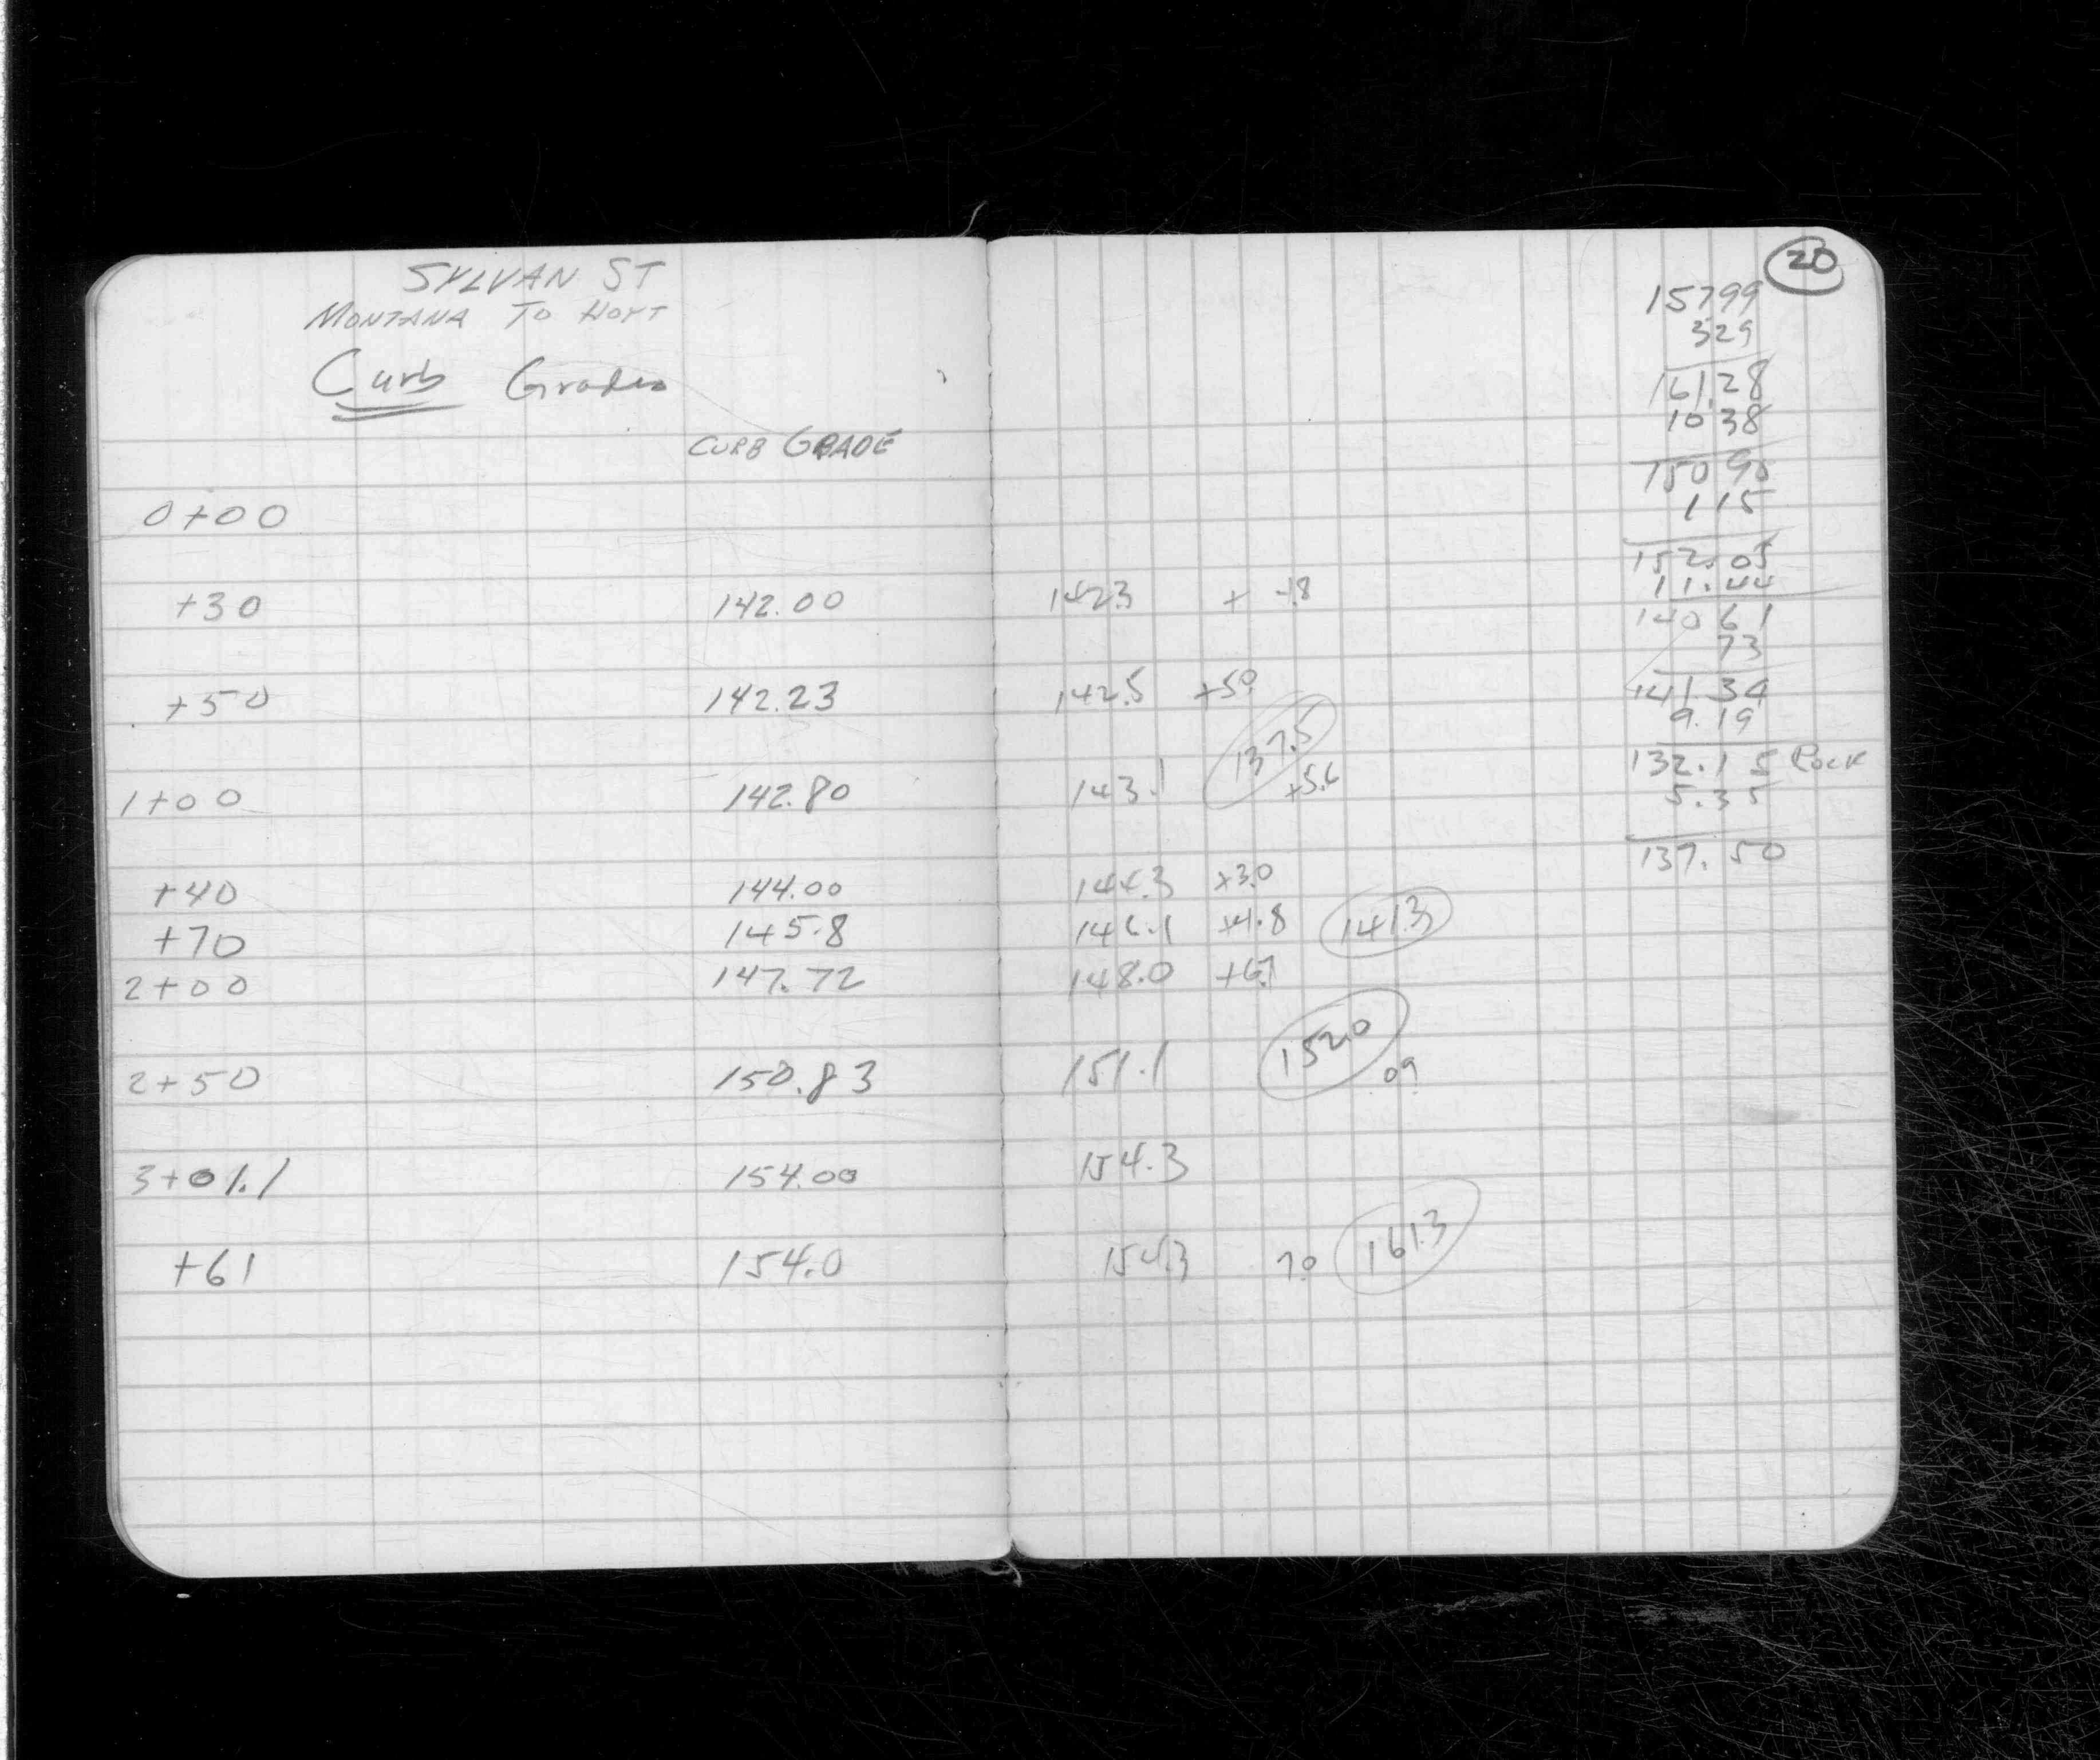 SYLVAN ST
MONTANA TO HOYT
Curb Grades
CURB GRADE
0+00
+30 142.00 142.3 +
+50 142.23 142.5 +5.0
137.5
1+00 142.80 143.1 +5.6
+40 144.00 144.3 +3.0
+70 145.8 146.1 +4.8 141.3
2+00 147.72 148.0 +6.7
2+50 150.83 151.1 152.0
09
3+01.1 154.00 154.3
+61 154.0 154.3 7.0 161.3
20
15799
329
161.28
10 38
150 90
1 15
152.05
11.44
140 61
73
141.34
9.19
132.15 Rock
5.35
137.50